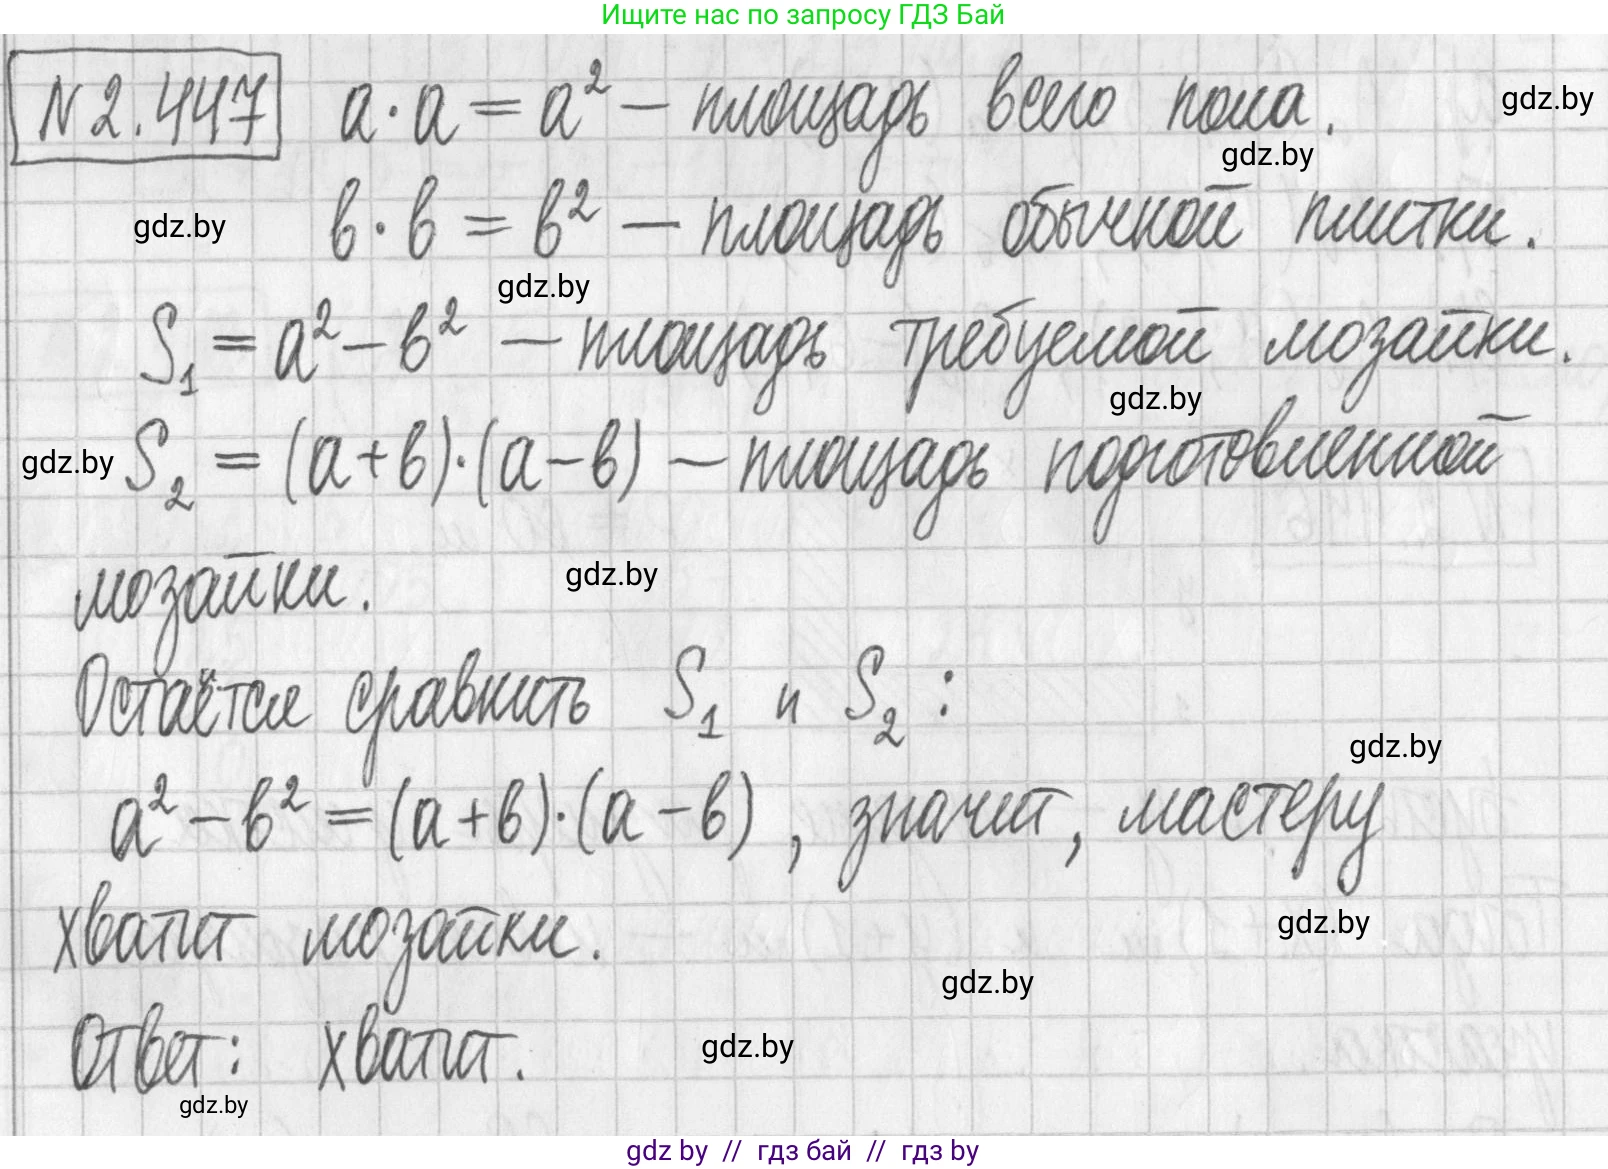 Ищите нас по запросу ГДЗ Бай
N 2.447 a·a = a² – площадь всего пола. gdz.by
gdz.by
gdz.by в·в = в² – площадь обычной плитки.
gdz.by
S₁ = a² – в² – площадь требуемой мозайки.
gdz.by
gdz.by S₂ = (a+в)·(a–в) – площадь подготовленной
мозайки. gdz.by
Остаётся сравнить S₁ и S₂:
gdz.by
a² – в² = (a+в)·(a–в), значит, мастеру
хватит мозайки. gdz.by
gdz.by
Ответ: хватит. gdz.by
gdz.by
gdz by // гдз бай // гдз by